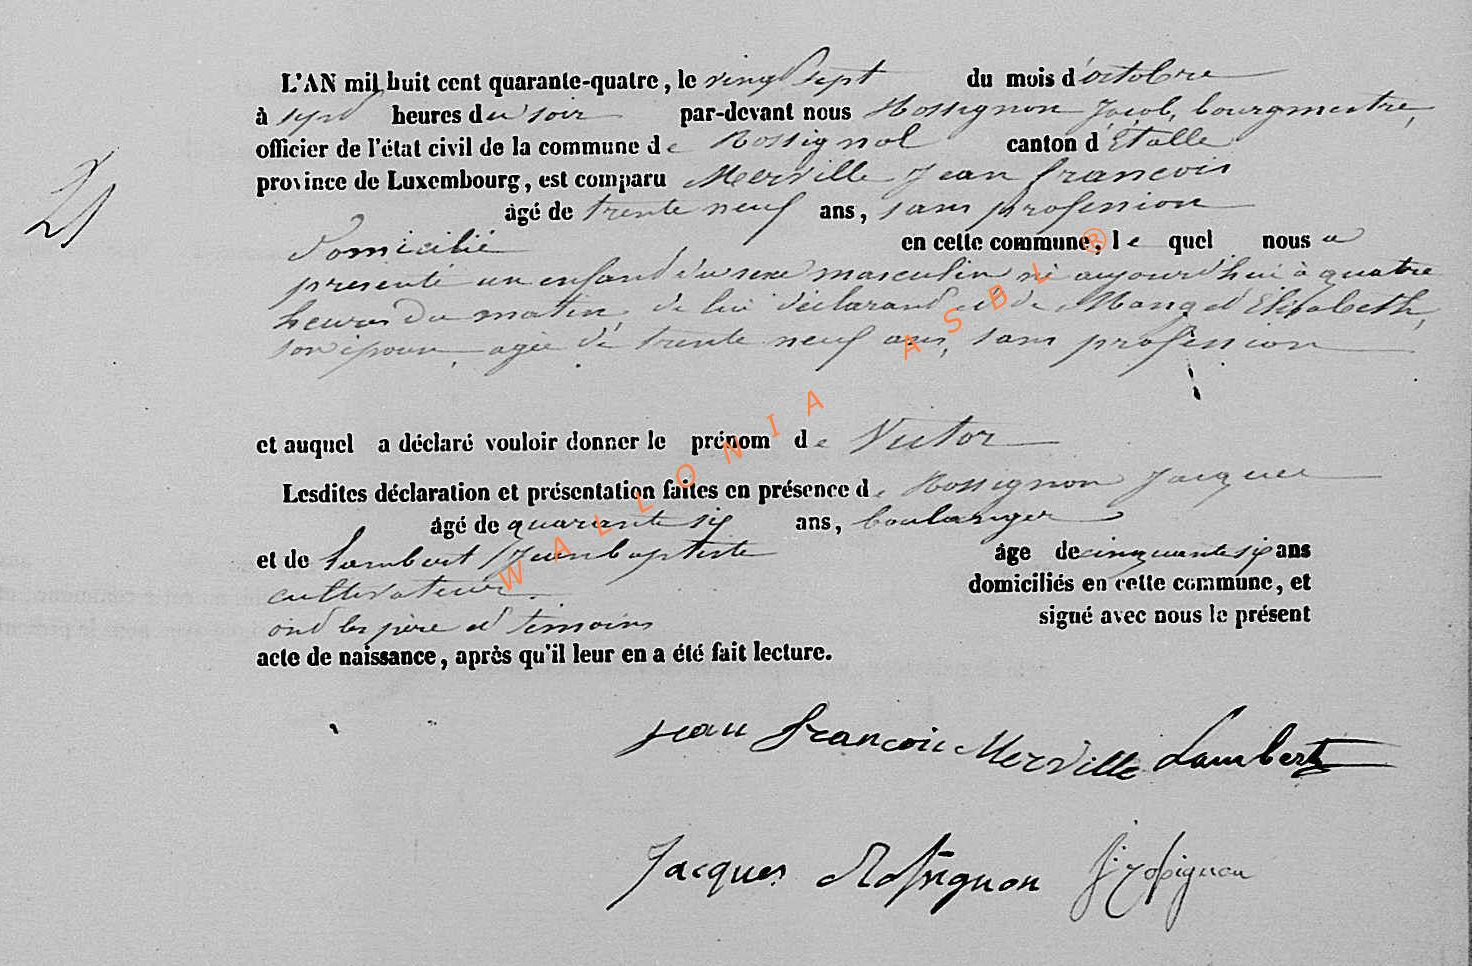 L'AN mil huit cent quarante-quatre, le vingt sept du mois d'octobre
à sept heures du soir par-devant nous Rossignon Jacob, bourgmestre,
officier de l'état civil de la commune de Rossignol canton d'Etalle
province de Luxembourg, est comparu Merville Jean françois
âgé de trente neuf ans, sans profession
21
domicilié en cette commune, le quel nous a
presenté un enfant du sexe masculin né aujourd'hui à quatre
heures du matin, de lui déclarant et de Mang et Elisabeth,
son épouse, agée de trente neuf ans, sans profession
et auquel a déclaré vouloir donner le prénom de Victor
Lesdites déclaration et présentation faites en présence de Rossignon Jacques
âgé de quarante six ans, boulanger
et de Lambert Jean baptiste âge de cinquante six ans
cultivateur domiciliés en cette commune, et
ont les père et témoins signé avec nous le présent
acte de naissance, après qu'il leur en a été fait lecture.
WALLONIA ASBL ®
jean françois Merville Lambert
Jacques Rossignon J. rossignon